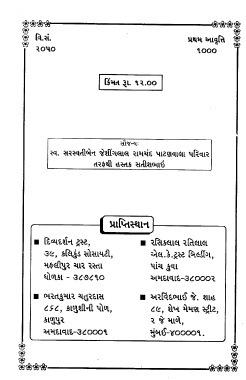 વિ.સં.
૨૦૫૦
પ્રથમ આવૃત્તિ
૧૦૦૦
કિંમત રૂા. ૧૨.૦૦
સૌજન્ય
સ્વ. સરસ્વતીબેન જેશીંગલાલ રામચંદ પાટણવાલા પરિવાર
તરફથી હસ્તક સતીશભાઇ
પ્રાપ્તિસ્થાન
■ દિવ્યદર્શન ટ્રસ્ટ,
૩૯, કલિકુંડ સોસાયટી,
મફલીપુર ચાર રસ્તા
ધોળકા - ૩૮૭૮૧૦
■ રસિકલાલ રતિલાલ
એલ.કે.ટ્રસ્ટ બિલ્ડીંગ,
પાંચ કુવા
અમદાવાદ-૩૮૦૦૦૨
■ ભરતકુમાર ચતુરદાસ
૮૬૮, કાળુશીની પોળ,
કાળુપુર
અમદાવાદ-૩૮૦૦૦૧
■ અરવિંદભાઈ જે. શાહ
૮૯, શેખ મેમણ સ્ટ્રીટ,
૨ જે માળે,
મુંબઈ-૪૦૦૦૦૧.